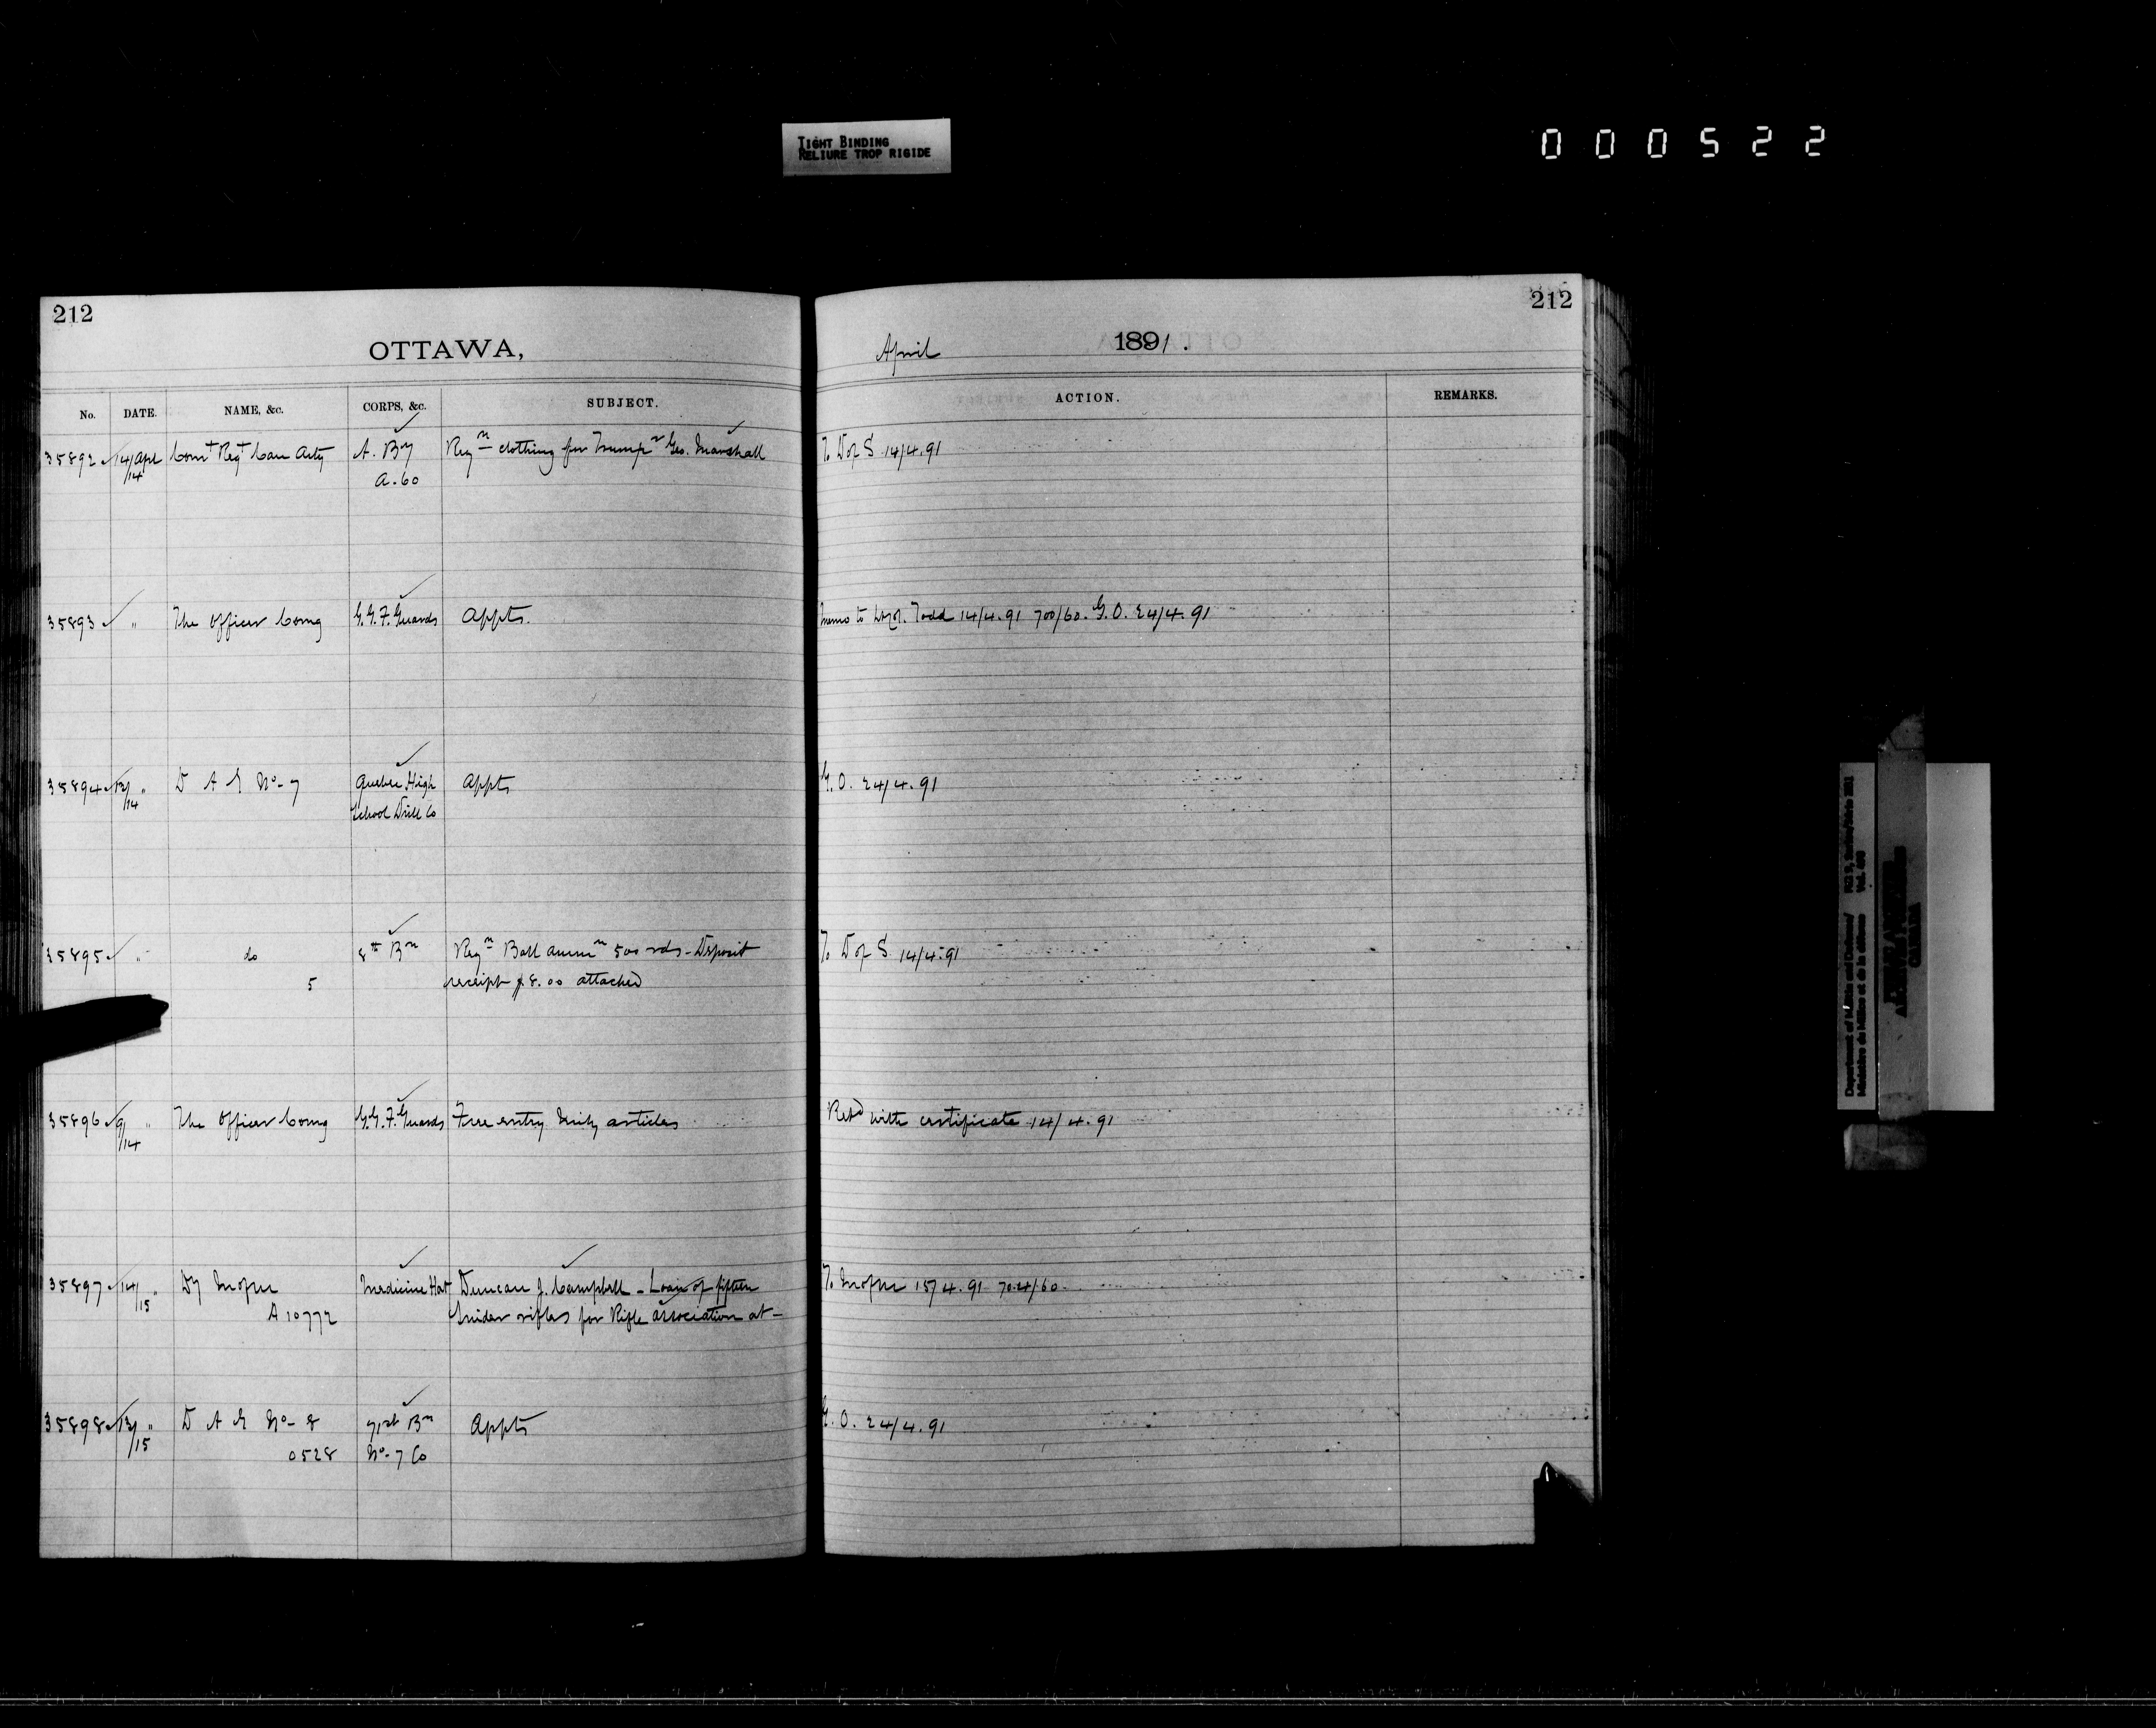 TIGHT BINDING
RELIURE TROP RIGIDE
000522
212
OTTAWA,
No. DATE. NAME, &c. CORPS, &c. SUBJECT.
35892 14/14 Apl Comt Regt Can Arty A. By Reqn clothing for Trumpr Geo. Marshall
A.60
35893 " The Officer Comg G.G.F. Guards Appts.
35894 13/14 " D A G No-7 Quebec High Appts
School Drill Co
35895 " do 8th Bn Reqn Ball ammn 500 rds - Deposit
5 receipt $8.00 attached
35896 9/14 " The Officer Comg G.G.F. Guards Free entry Mily articles
35897 14/15 " Dy Mofm Medicine Hat Duncan J. Campbell - Loan of fifteen
A 10772 Snider rifles for Rifle association at -
35898 13/15 " D A G No-8 71st Bn Appts
0528 No-7 Co
212
April 1891.
ACTION. REMARKS.
To D of S 14/4.91
Memo to Todd 14/4.91 700/60. G.O. 24/4.91
G.O. 24/4.91
To D of S 14/4.91
Retd with certificate 14/4.91
To Mofm 15/4.91 704/60
G.O. 24/4.91
Department of Militia and Defence/
Ministère de Milice et de la défense
Vol. 66